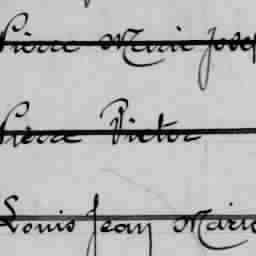 Pierre Marie Josep
Pierre Victor
Louis Jean Marie